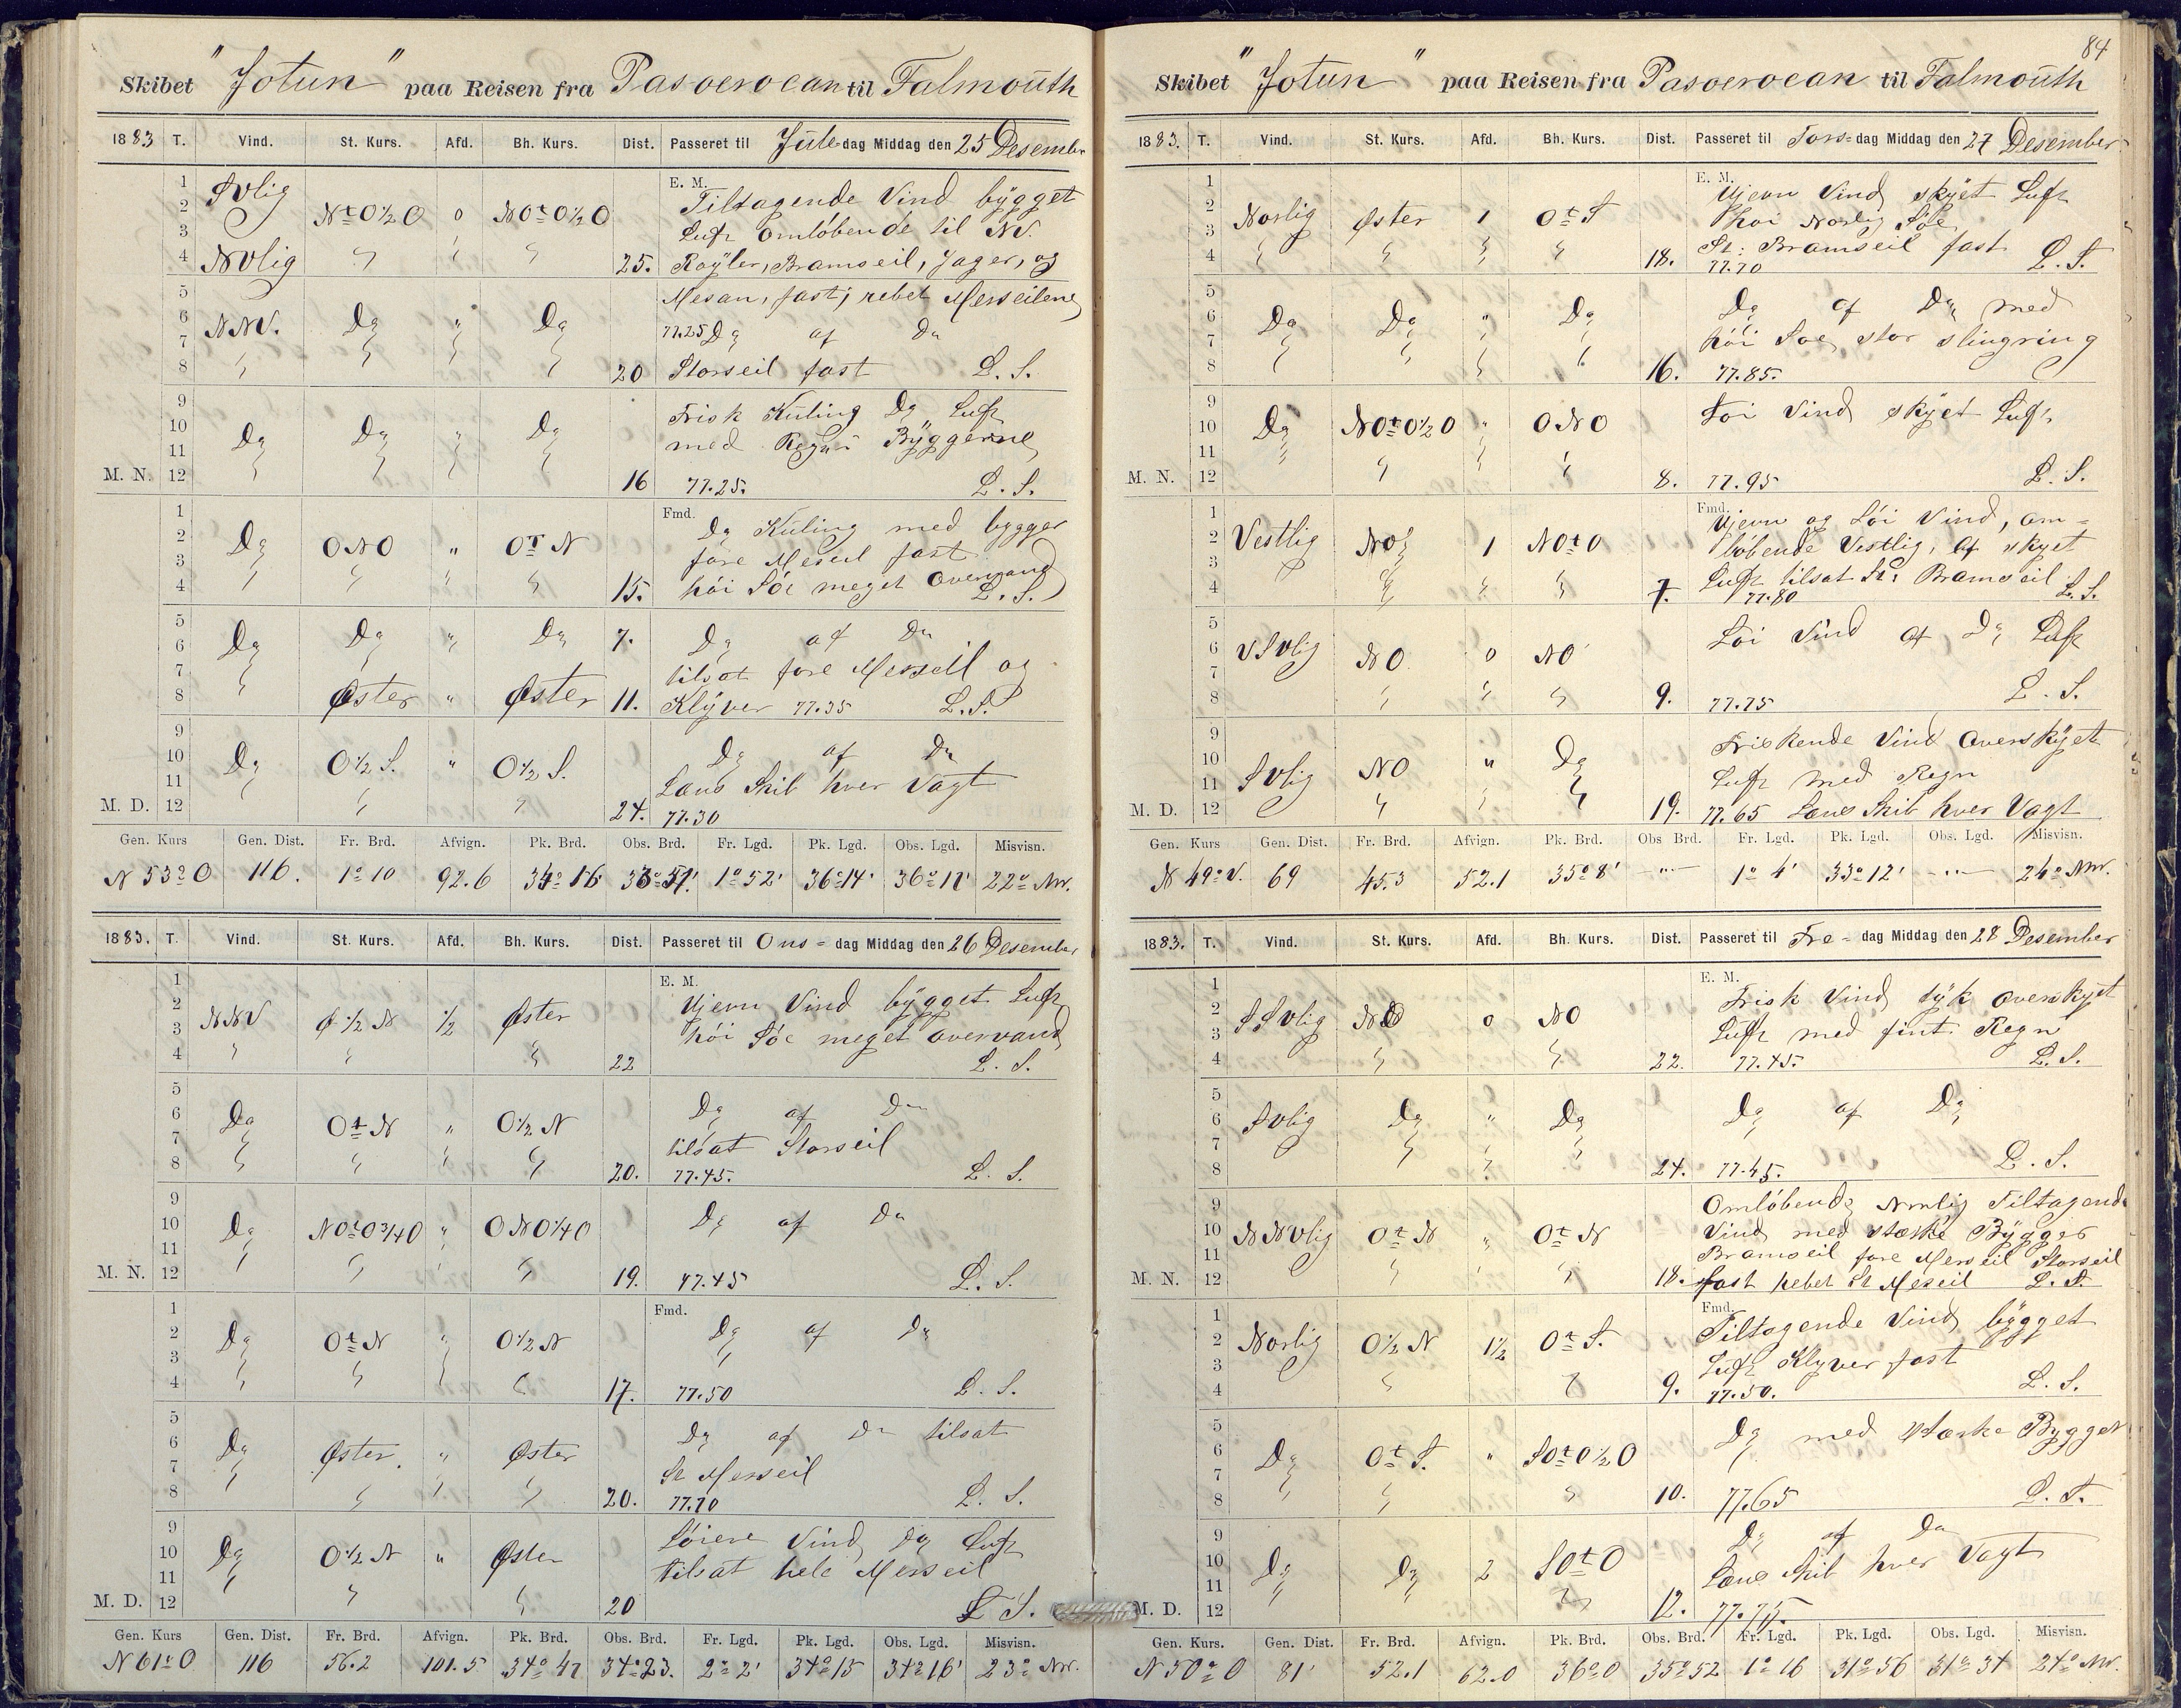 Skibet "Jotun" paa Reisen fra Pasoeroean til Falmouth
1883 T. Vind. St. Kurs. Afd. Bh. Kurs. Dist. Passeret til Jule dag Middag den 25 Desember
E. M.
1 Svlig Tiltagende Vind bygget
2 N t O ½ O 0 N O t O ½ O Luft Omløbende til NV.
3
4 NVlig 25. Røyler, Bramseil, Jager, og
5 Mesan, fast; rebet Merseilene
6 NNV. Do " Do 77.25 Do af Do
7
8 20 Storseil fast L. S.
9 Frisk Kuling Do Luft
10 Do Do " Do med Regn Byggerne
11
M. N. 12 16 77.25. L. S.
Fmd.
1 Do Kuling med bygger
2 Do ONO " O t N fore Merseil fast
3
4 15. høi Söe meget Overvand L. S.
5
6 Do Do " Do 7. Do af Do
7 tilsat fore Merseil og
8 Øster " Øster 11. Klyver 77.35 L. S.
9
10 Do O ½ S. " O ½ S. Do af Do
11 Lens Skib hver Vagt
M. D. 12 24. 77.30
Gen. Kurs Gen. Dist. Fr. Brd. Afvign. Pk. Brd. Obs. Brd. Fr. Lgd. Pk. Lgd. Obs. Lgd. Misvisn.
N 53° O 116. 1° 10 92.6 1° 52' 36° 14' 22° NW.
1883. T. Vind. St. Kurs. Afd. Bh. Kurs. Dist. Passeret til Ons= dag Middag den 26 Desember
E. M.
1 Ujevn Vind bygget Luft
2 NNV Ø ½ N ½ Øster høi Söe meget overvand
3
4 22 L. S.
5
6 Do O t N " O ½ N Do af Do
7 tilsat Storseil
8 20. 77.45. L. S.
9
10 Do N O t O ¾ O " O N O ¼ O Do af Do
11
M. N. 12 19. 77.45 L. S.
Fmd.
1
2 Do O t N " O ½ N Do af Do
3
4 17. 77.50 L. S.
5
6 Do Øster. " Øster Do af Do tilsat
7 St Merseil
8 20. 77.70 L. S.
9 Løiere Vind Do Luft
10 Do O ½ N " Øster tilsat hele Merseil
11
M. D. 12 20 L. S.
Gen. Kurs Gen. Dist. Fr. Brd. Afvign. Pk. Brd. Obs. Brd. Fr. Lgd. Pk. Lgd. Obs. Lgd. Misvisn.
N 61° O 116 56.2 101.5 34° 47 34° 23. 2° 2' 34° 15 34° 16' 23° NW.
84
Skibet "Jotun" paa Reisen fra Pasoeroean til Falmouth
1883. T. Vind. St. Kurs. Afd. Bh. Kurs. Dist. Passeret til Tors= dag Middag den 27 Desember
E. M.
1 Ujevn Vind skyet Luft
2 Norlig Øster 1 O t S høi Norlig Söe
3 St: Bramseil fast
4 18. 77.70 L. S.
5
6 Do Do " Do Do af Do med
7 høi Soe, stor slingring
8 16. 77.85.
9 Løi Vind skyet Luft
10 Do N O t O ½ O " ONO
11
M. N. 12 8. 77.95 L. S.
Fmd.
1 Ujevn og Løi Vind, om=
2 Vestlig NO 1 N O t O løbende Vestlig, af skyet
3 Luft tilsat St: Bramseil
4 7. 77.80 L. S.
5
6 VSVlig NO 0 NO Løi Vind af Do Luft
7
8 9. 77.75 L. S.
9 Friskende Vind Overskyet
10 Svlig NO " Do Luft med Regn
11
M. D. 12 19. 77.65 Lens Skib hver Vagt
Gen. Kurs Gen. Dist. Fr. Brd. Afvign. Pk. Brd. Obs Brd. Fr. Lgd. Pk. Lgd. Obs. Lgd. Misvisn.
N 49° V. 69 45.3 52.1 35° 8' —"— 1° 4' 33° 12' —"— 24° NW.
1883. T. Vind. St. Kurs. Afd. Bh. Kurs. Dist. Passeret til Fre= dag Middag den 28 Desember
E. M.
1 Frisk Vind tyk overskyet
2 SSvlig NO 0 NO Luft med fint Regn
3
4 22. 77.45. L. S.
5
6 Svlig Do " Do Do af Do
7
8 24. 77.45. L. S.
9 Omløbende Nordlig Tiltagende
10 NNVlig O t N " O t N Vind med stærke Bygger
11 Bramseil fore Merseil Storseil
M. N. 12 18. fast rebet St Merseil L. S.
Fmd.
1 Tiltagende Vind bygget
2 Norlig O ½ N 1½ O t S. Luft Klyver fast
3
4 9. 77.50. L. S.
5
6 Do O t S. " S O t O ½ O Do med stærke Bygger
7
8 10. 77.65 L. S.
9 Do af Do
10 Do Do 2 S O t O Lens Skib hver Vagt
11
M. D. 12 12. 77.75.
Gen. Kurs. Gen. Dist. Fr. Brd. Afvign. Pk. Brd. Obs. Brd. Fr. Lgd. Pk. Lgd. Obs. Lgd. Misvisn.
N 50° O 81' 52.1 62.0 36° 0 35° 52 1° 16 31° 56 31° 34 24° NW.